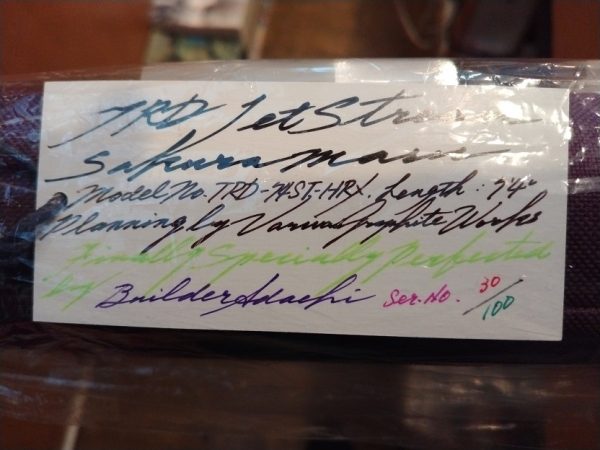 TRD JetStream
Sakura masu
Model No. TRD-74ST-HRX. Length: 7'4"
Planning by Various Graphite Works
Finally Specially Perfected
by Builder Adachi Ser. No. 30/100